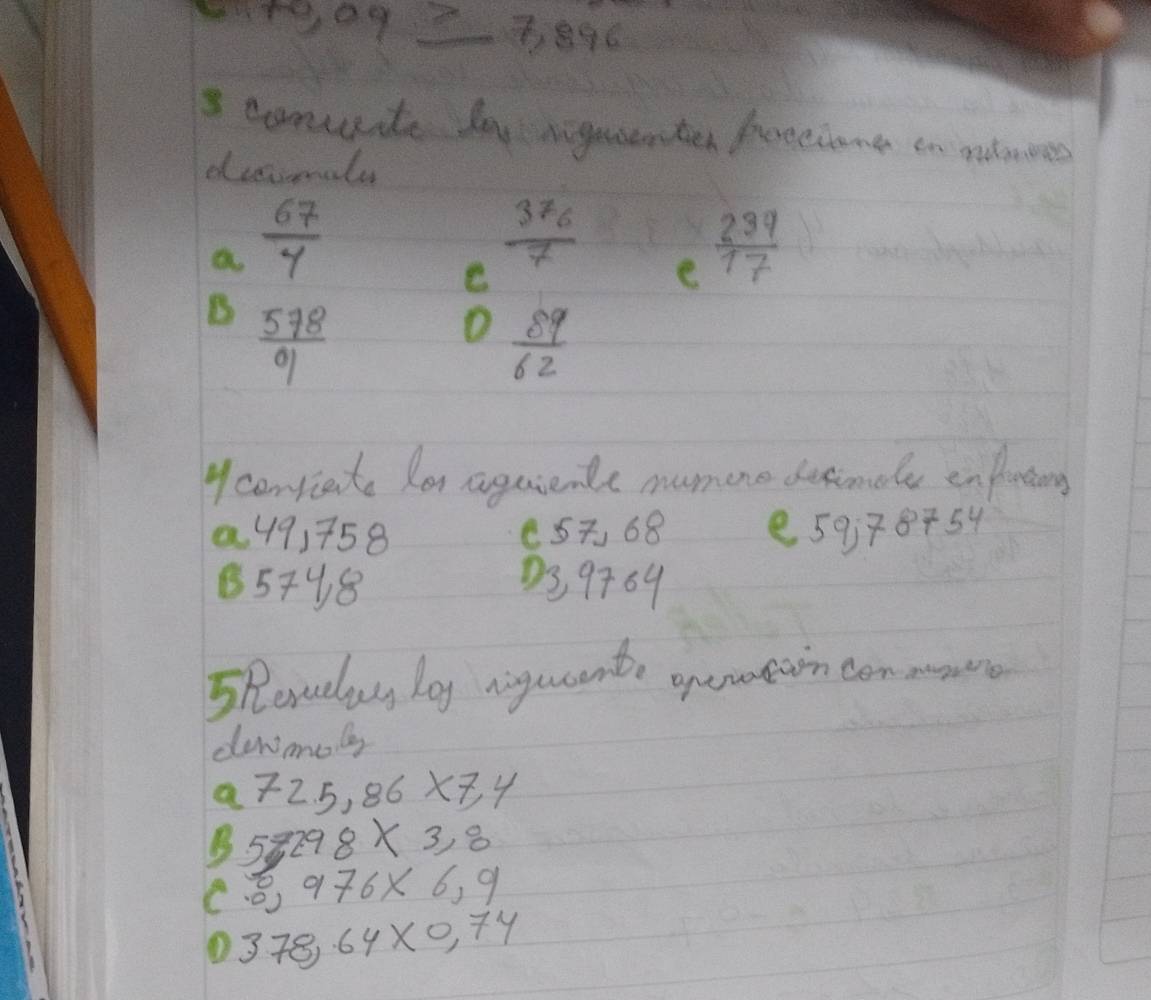 ,09 ≥ 7,896
3 conuerte las siguientes fracciones en numeros
decimales
a 67/4 c 376/7 e 239/17
B 578/9 D 89/62
4 convierte los aguiente numero decimales en
a 49,758 c 57,68 e 59,78754
B 574,8 D 3,9764
5 Resuelves los siguiente operación con numero
decimoles
a 725,86 x 7,4
B 298 x 3,8
c 8,976 x 6,9
D 378,64 x 0,74